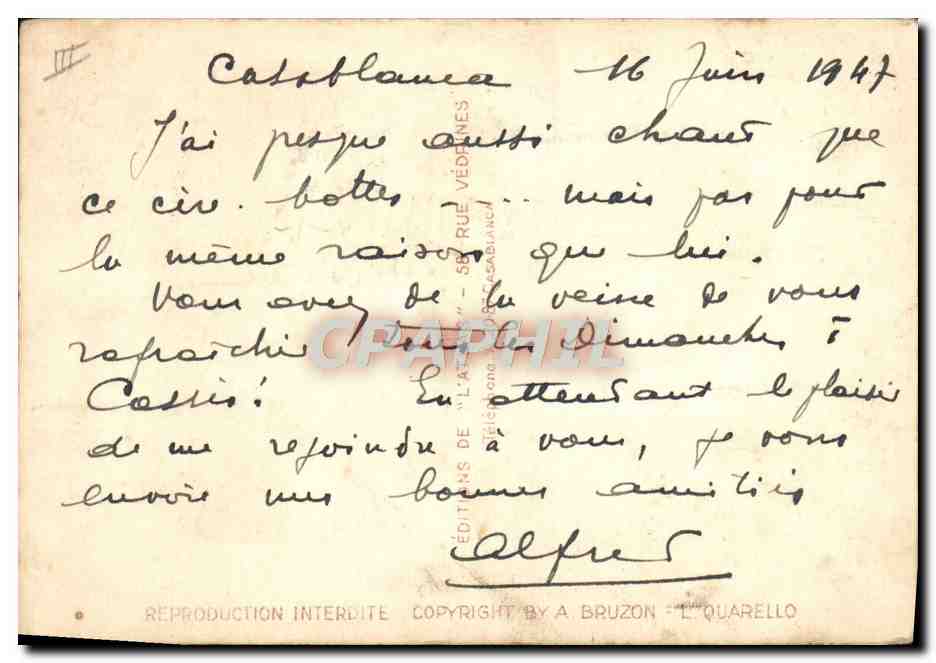 III
Casablanca 16 Juin 1947
J'ai presque aussi chaud que
ce cire-bottes - . .. mais pas pour
la même raison que lui.
Vous avez de la veine de vous
rafraîchir tous les Dimanches à
Cassis! En attendant le plaisir
de me rejoindre à vous, je vous
envoie mes bonnes amitiés
Alfred
EDITIONS DE "L'AT - 58, RUE VEDRINES
Téléphone CASABLANCA
CPAPHIL
REPRODUCTION INTERDITE COPYRIGHT BY A BRUZON - L. QUARELLO